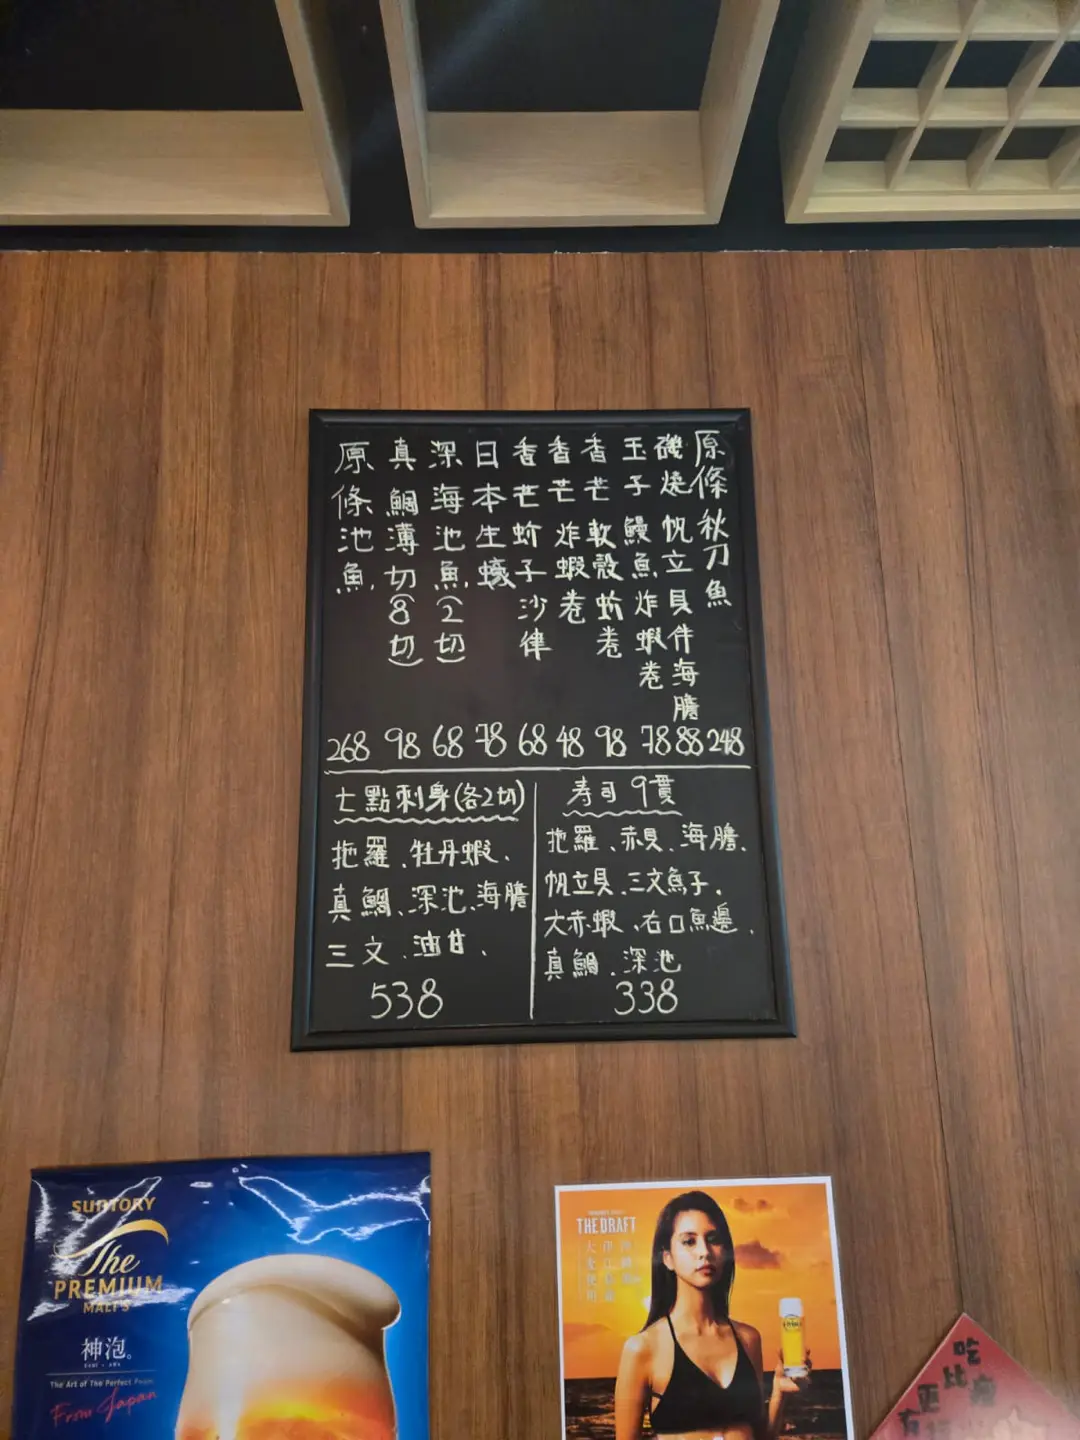 原條秋刀魚
磯燒帆立貝伴海膽
玉子鰻魚炸蝦卷
香芒軟殼蚧卷
香芒炸蝦卷
香芒蚧子沙律
日本生蠔
深海池魚(2切)
真鯛薄切(8切)
原條池魚
268 98 68 78 68 48 98 78 88 248
七點刺身(各2切)
拖羅、牡丹蝦、
真鯛、深池、海膽
三文、油甘、
538
寿司 9貫
拖羅、赤貝、海膽、
帆立貝、三文魚子、
大赤蝦、右口魚邊、
真鯛、深池
338
SUNTORY
The
PREMIUM
MALT'S
神泡。
The Art of The Perfect Foam
From Japan
THE DRAFT
吃